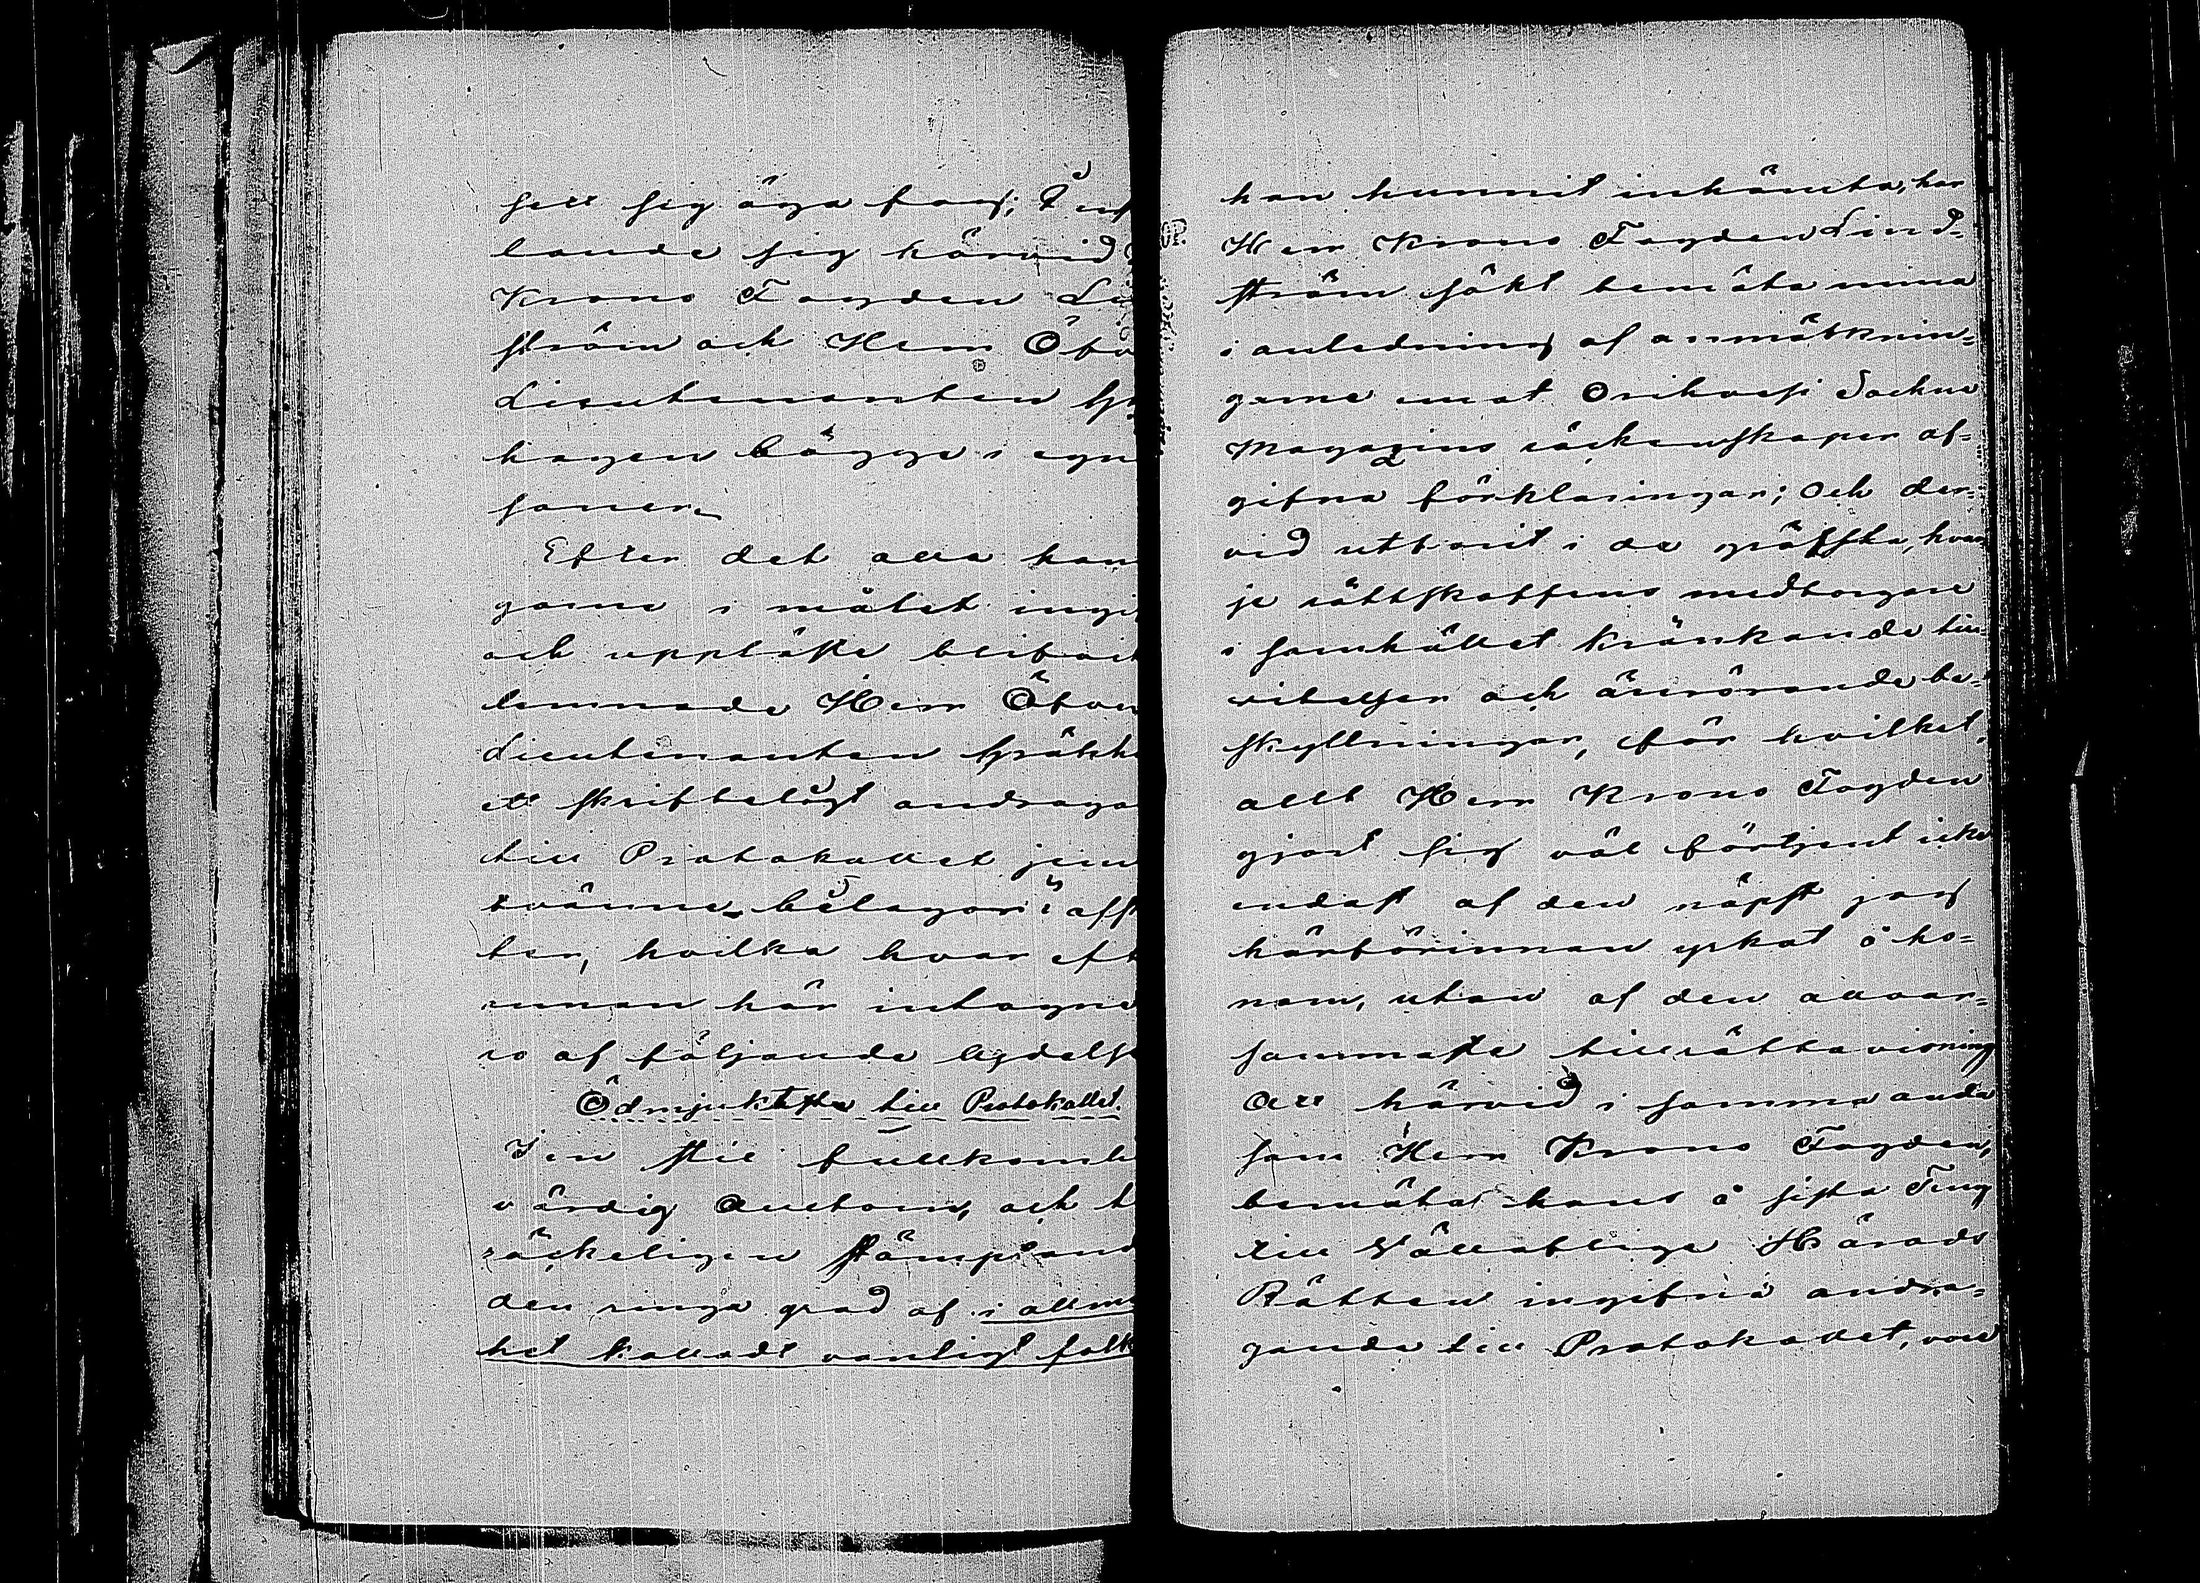 sig äga
lande sig härvid
Krono Fogden
ström och Herr
Lieutenanten
hagen bägge i
soner.
Efter det alla
garne i målet
och uppläste blifvit
lemnade Herr Öfver
Lieutenanten
ett skrifteligt andraga
till Protokollet
tvänne bilagor i
ter, hvilka hvar
annan här intagne
ro af följande lydelse
Ödmjukast till Protokollet.
I en stil
värdig Auctorn, och
räckeligen stämpl
den ringa grad af i allm
het kalladt vanligt folk
han hunnit inhämta, har
Herr Krono Fogden Lind-
ström sökt bemöta mina
i anledning af anmärknin-
garne emot Orihvesi Sockne
Magazins räckenskaper af-
gifna förklaringar; Och der-
vid utfarit i de gröfsta, hvar
je rättskaffens medborgare
i samhället kränkande till-
vitelser och ärerörande be-
skyllningar, för hvilket
allt Herr Krono Fogden
gjort sig väl förtjent icke
endast af den näpst jag
härförinnan yrkat å ho-
nom, utan af den allvar-
sammaste tillrättavisning
Att härvid i samma anda
som Herr Krono Fogden,
bemöta hans å sista Ting
till Vällofliga Härads
Rätten ingifna andra-
gande till Protokollet, vore